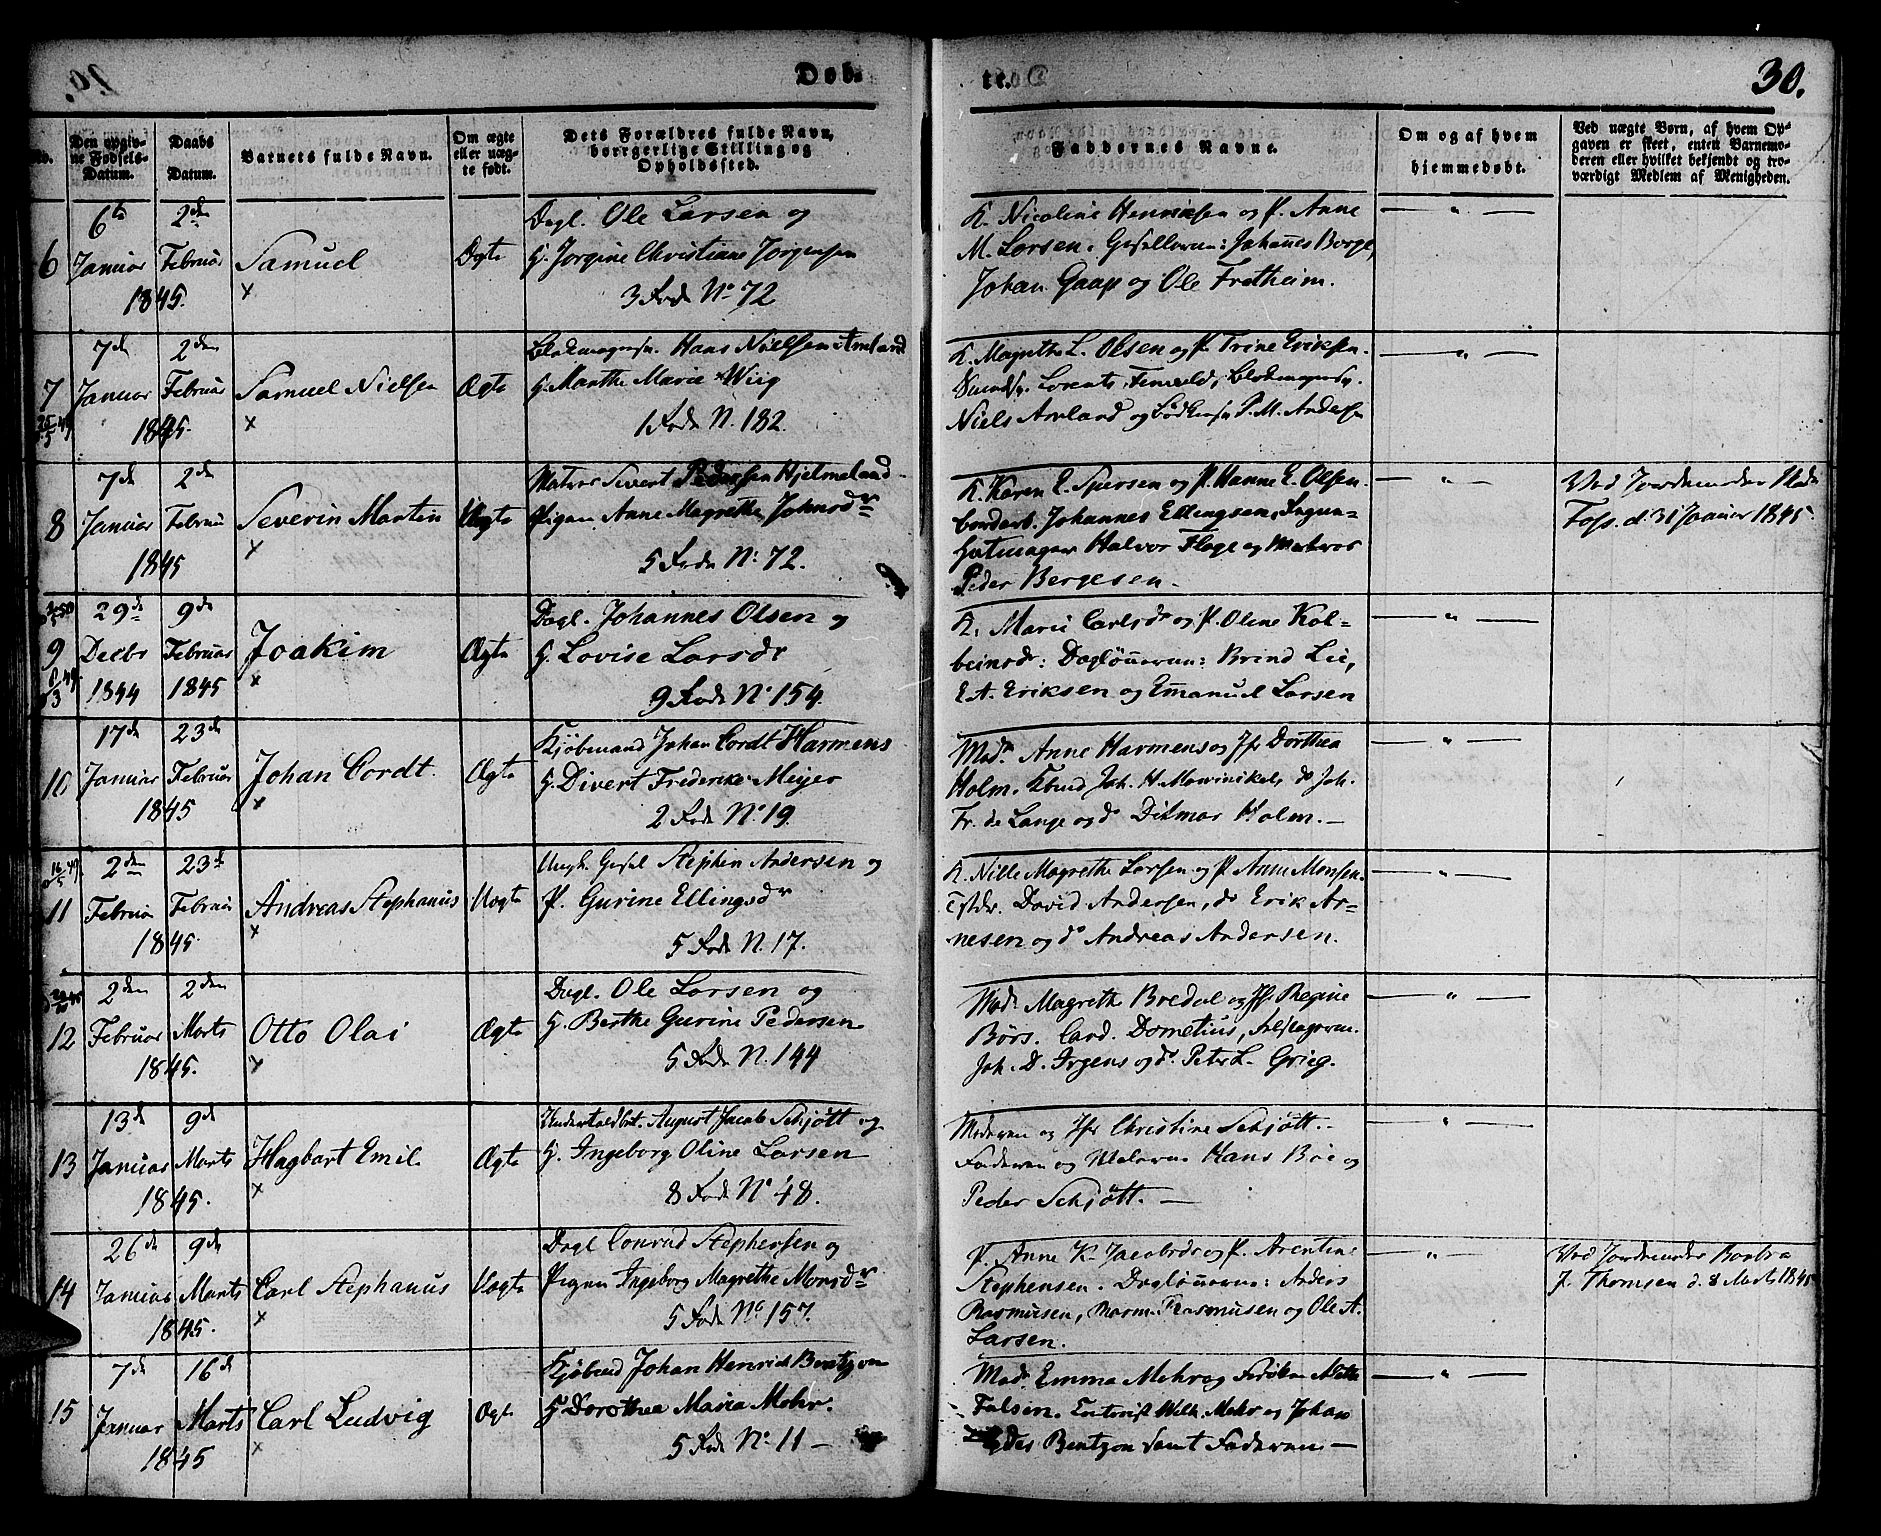 Døb-
te.
30.
No.
Den opgiv-
ne Fødsels-
Datum.
Daabs
Datum.
Barnets fulde Navn.
Om ægte
eller uæg-
te født.
Dets Forældres fulde Navn,
borgerlige Stilling og
Opholdssted.
Faddernes Navne.
Om og af hvem
hjemmedøbt.
Ved uægte Børn, af hvem Op-
gaven er skeet, enten Barnemo-
deren eller hvilket bekjendt og tro-
værdigt Medlem af Menigheden.
6
6te Januar 1845.
2den Februar
Samuel
Ægte
Dagl. Ole Larsen og
H. Jorgine Christiane Jørgensen
3 Rode No 72
K. Nicoline Henriksen og P. Anne
M. Larsen. Johannes Borge,
Johan Gaape og Ole Fretheim.
— " —
7
7de Januar 1845.
2den Februar
Samuel Nielsen
Ægte
Hans Nielsen Arnland
H. Marthe Marie Wiig
1 Rode N. 182.
K. Magrethe L. Olsen og P. Trine Eriksen.
Lorents
Niels Arnland og P. M. Andersen
— " —
8
7de Januar 1845
2de Februar
Severin Martin
Uægte
Matros Sivert Pedersen Hjelmeland
Pigen Anne Magrethe Johnsdr
5 Rode No 72.
K. Karen E. Spersen og P. Hanne E. Olsen.
Johannes Ellingsen,
Hatmager Halvor Flage og Matros
Peder Bergesen.
— " —
Ved Jordemoder Mad.
Foss. d. 31 Januar 1845.
9
29de Decbr 1844
9de Februar 1845
Joakim
Ægte
Dagl. Johannes Olsen og
H. Lovise Larsdr
9 Rode No 154.
K. Marie Carlsdr og P. Oline Kol-
beinsdr: Dagløñerne: Brind Lie,
E. A. Eriksen og Emanuel Larsen
— " —
10
17de Januar 1845
23de Februar
Johan Cordt.
Ægte
Kjøbmand Johan Cordt Harmens
H. Divert Frederike Meyer
2 Rode No 19.
Mad. Anne Harmens og Jfr Dorthea
Holm. Kbmd Joh. H. Mowinikel, do Joh.
Fr. de Lange og do Ditmar Holm. —
— " —
11
2den Februar 1845.
23de Februar
Andreas Stephanus
Uægte
Ungk. Stephen Andersen og
P. Gurine Ellingsdr
5 Rode N. 17.
K. Nille Magrethe Larsen og P. Anne Monsen.
David Andersen, do Erik Ar-
nesen og do Andreas Andersen.
— " —
12
2den Februar 1845.
2den Marts
Otto Olai
Ægte
Dagl. Ole Larsen og
H. Berthe Gurine Pedersen
5 Rode N. 144
Mad. Magrethe Bredal og Jfr. Regine
Børs. Cand. Dometius,
Joh. D. Irgens og do. Peter L. Grieg.
— " —
13
13de Januar 1845.
9de Marts
Hagbart Emil.
Ægte
August Jacob Schjøtt og
H. Ingeborg Oline Larsen
8 Rode No 48.
Moderen og Jfr Christine Schjøtt.
Faderen og Hans Bøe og
Peder Schjøtt. —
— " —
14
26de Januar 1845.
9de Marts
Carl Stephanus
Uægte
Dagl Conrad Stephensen og
Pigen Ingeborg Magrethe Monsdr
5 Rode No 157.
P. Anne K. Jacobsdr og P. Arentine
Stephensen. Dagløñerne: Anders
Rasmusen, Rasmusen og Ole A.
Larsen.
— " —
Ved Jordemoder Barbra
P. Thomsen d. 8 Marts 1845
15
7de Januar 1845
16de Marts
Carl Ludvig
Ægte
Kjøbmd Johan Henrich Bentzon
H. Dorothea Maria Mohr.
5 Rode No 11 —
Mad. Emma Mohr og Frøken
Falsen. Wilh. Mohr og Johan
Bentzon samt Faderen. —
— " —